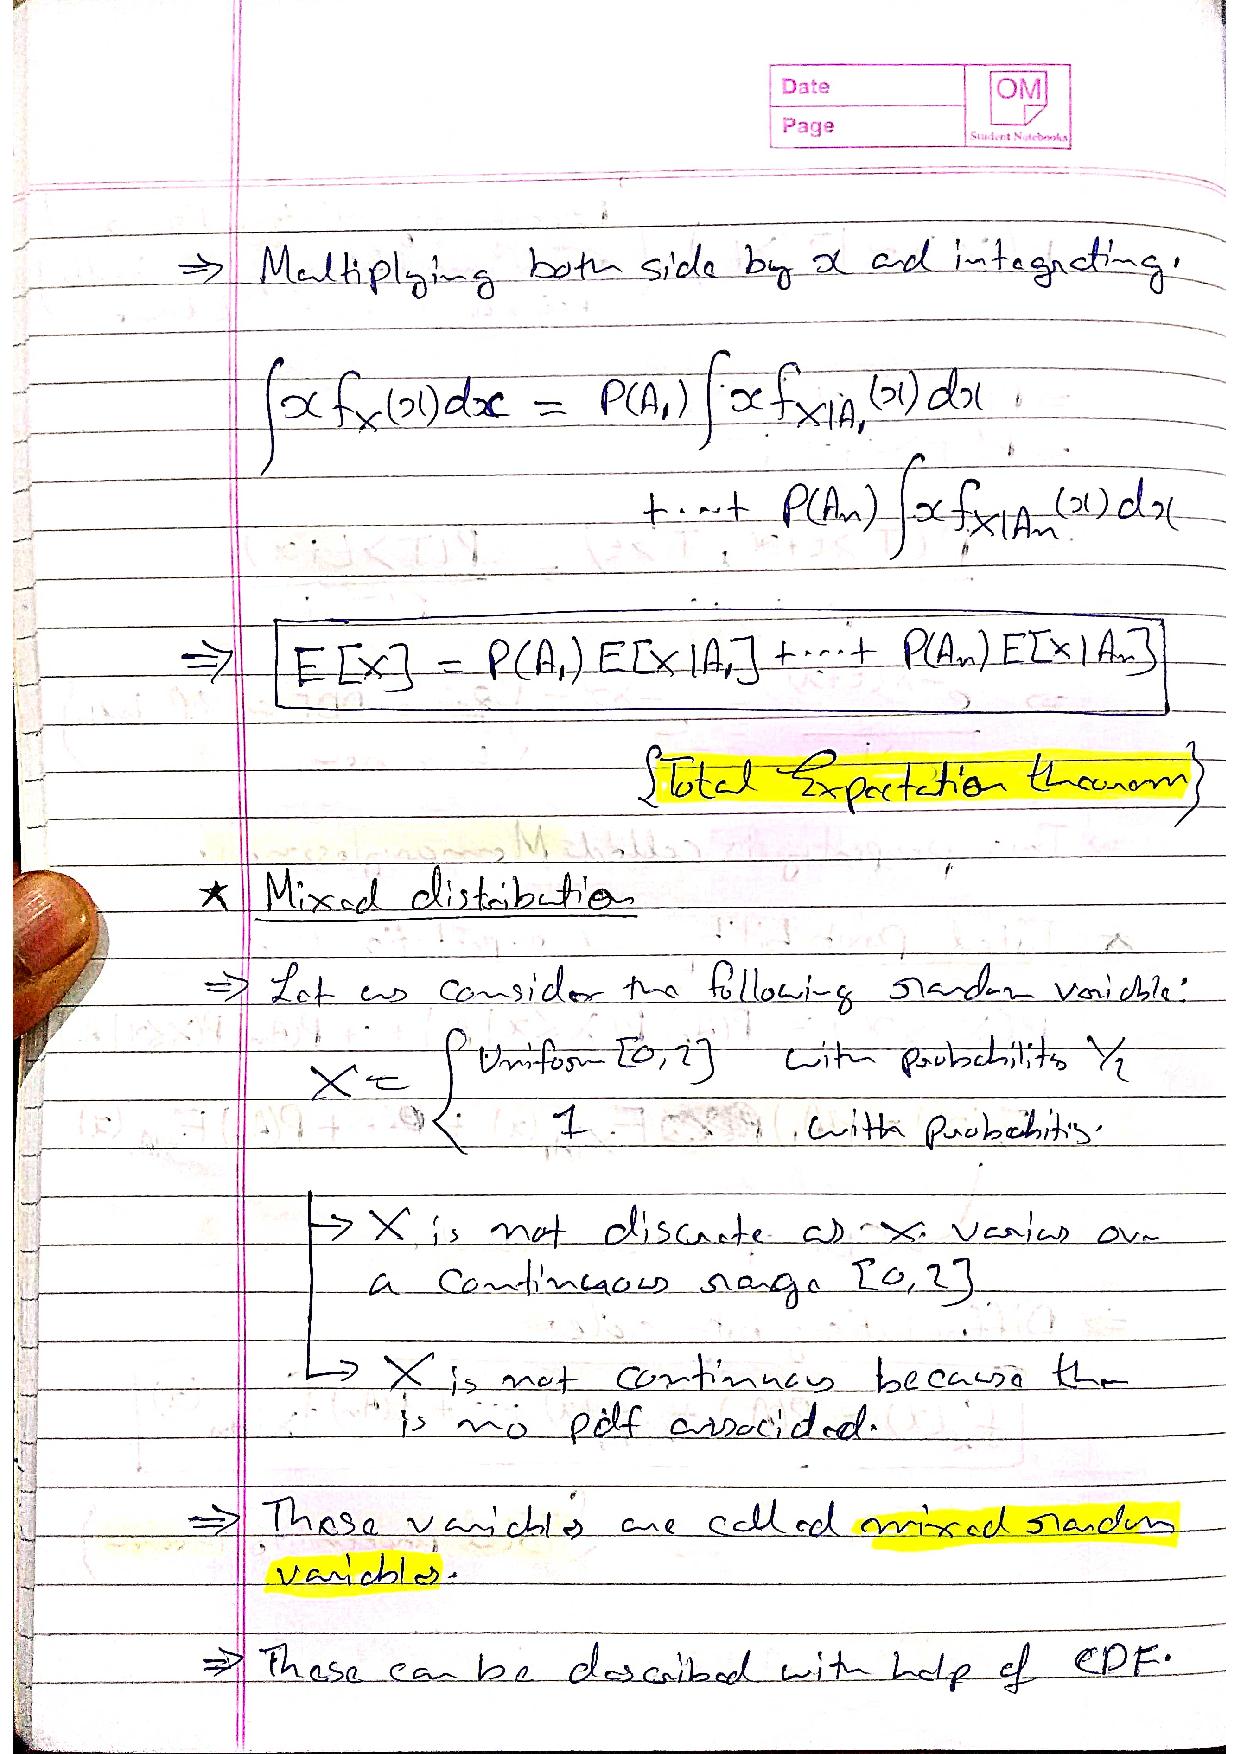 Date
Page
OM
Student Notebooks
⇒ Multiplying both side by x and integrating.
∫x f_X(x)dx = P(A₁) ∫x f_X|A₁(x) dx
+...+ P(Aₙ) ∫x f_X|Aₙ(x) dx
⇒ E[X] = P(A₁) E[X|A₁] +...+ P(Aₙ) E[X|Aₙ]
{Total Expectation theorem}
★ Mixed distribution
⇒ Let us consider the following random variable:
X = { Uniform [0,2] with probability 1/2
1 with probability.
→ X is not discrete as x varies over
a continuous range [0,2]
→ X is not continuous because the
is no pdf associated.
⇒ These variables are called mixed random
variables.
⇒ These can be described with help of CDF.